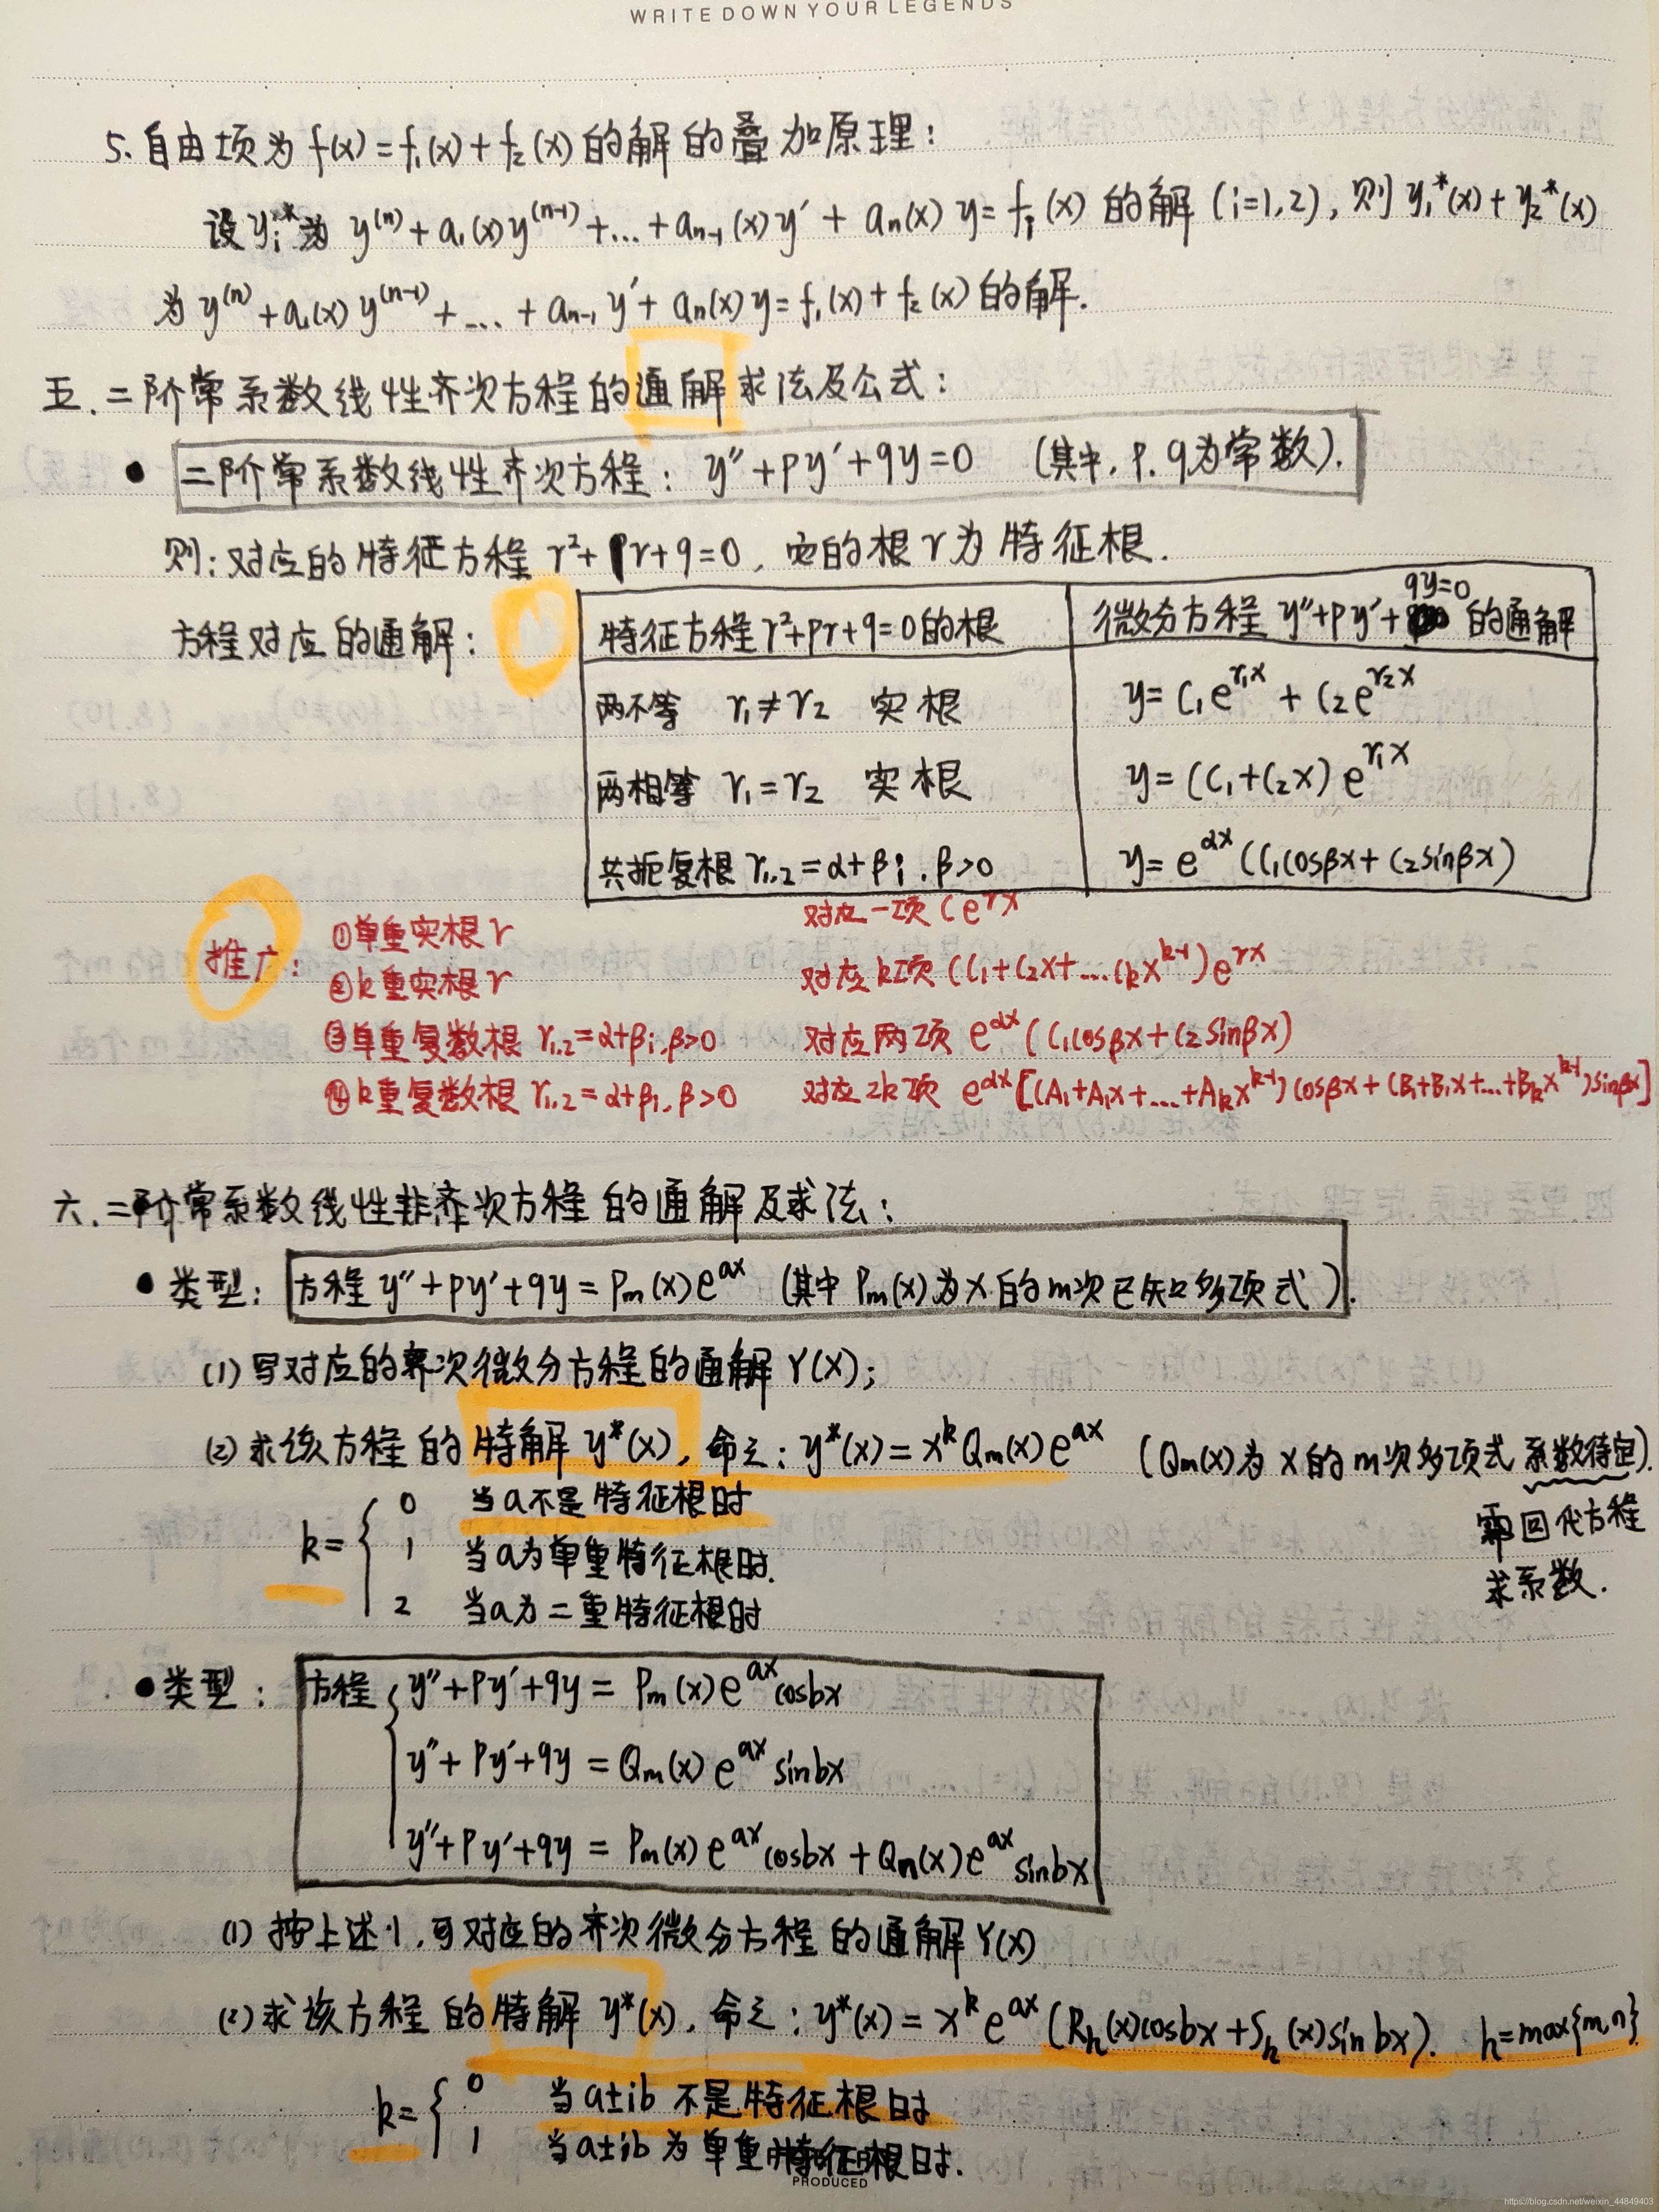 WRITE DOWN YOUR LEGENDS
5. 自由项为 f(x) = f₁(x) + f₂(x) 的解的叠加原理：
设 yᵢ* 为 y⁽ⁿ⁾ + a₁(x) y⁽ⁿ⁻¹⁾ + ... + aₙ₋₁(x) y′ + aₙ(x) y = fᵢ(x) 的解 (i=1,2), 则 y₁*(x) + y₂*(x)
为 y⁽ⁿ⁾ + a₁(x) y⁽ⁿ⁻¹⁾ + ... + aₙ₋₁ y′ + aₙ(x) y = f₁(x) + f₂(x) 的解.
五. 二阶常系数线性齐次方程的通解求法及公式：
• 二阶常系数线性齐次方程：y″ + py′ + qy = 0 (其中, p. q为常数).
则：对应的特征方程 r² + pr + q = 0, 它的根 r 为特征根.
方程对应的通解：
特征方程 r²+pr+q=0 的根 微分方程 y″+py′+qy=0 的通解
两不等 r₁≠r₂ 实根 y = C₁e^{r₁x} + C₂e^{r₂x}
两相等 r₁=r₂ 实根 y = (C₁+C₂x) e^{r₁x}
共扼复根 r₁.₂ = α+βi. β>0 y = e^{αx} (C₁cosβx + C₂sinβx)
推广：
①单重实根 r 对应一项 Ce^{rx}
②k重实根 r 对应k项 (C₁+C₂x+...Cₖx^{k-1}) e^{rx}
③单重复数根 r₁.₂ = α+βi. β>0 对应两项 e^{αx} (C₁cosβx + C₂sinβx)
④k重复数根 r₁.₂ = α+βi. β>0 对应2k项 e^{αx} [(A₁+A₁x+...+Aₖx^{k-1}) cosβx + (B₁+B₁x+...+Bₖx^{k-1}) sinβx]
六. 二阶常系数线性非齐次方程的通解及求法：
• 类型：方程 y″ + py′ + qy = Pₘ(x)e^{ax} (其中 Pₘ(x) 为 x 的 m次已知多项式).
(1) 写对应的齐次微分方程的通解 Y(x);
(2) 求该方程的特解 y*(x), 命之：y*(x) = x^k Qₘ(x) e^{ax} (Qₘ(x) 为 x 的 m次多项式 系数待定).
需回代方程
求系数.
k= { 0 当a不是特征根时
1 当a为单重特征根时.
2 当a为二重特征根时
• 类型：方程 { y″ + py′ + qy = Pₘ(x) e^{ax} cosbx
y″ + py′ + qy = Qₘ(x) e^{ax} sinbx
y″ + py′ + qy = Pₘ(x) e^{ax} cosbx + Qₙ(x) e^{ax} sinbx
(1) 按上述1, 写对应的齐次微分方程的通解 Y(x)
(2) 求该方程的特解 y*(x), 命之：y*(x) = x^k e^{ax} (Rₕ(x)cosbx + Sₕ(x)sin bx). h=max{m,n}
k= { 0 当a±ib 不是特征根时
1 当a±ib 为单重特征根时.
PRODUCED
https://blog.csdn.net/weixin_44849403